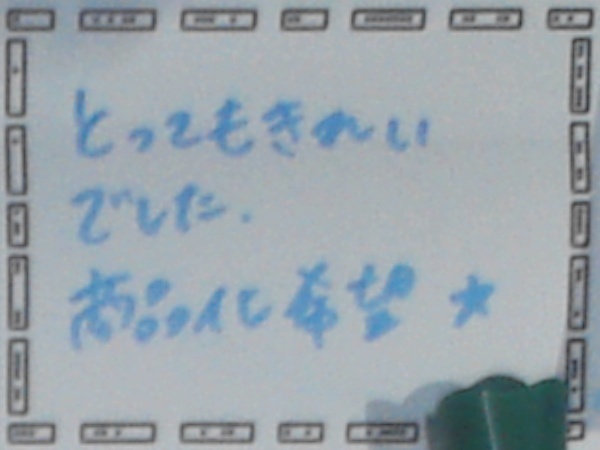 とってもきれい
でした.
商品化希望★